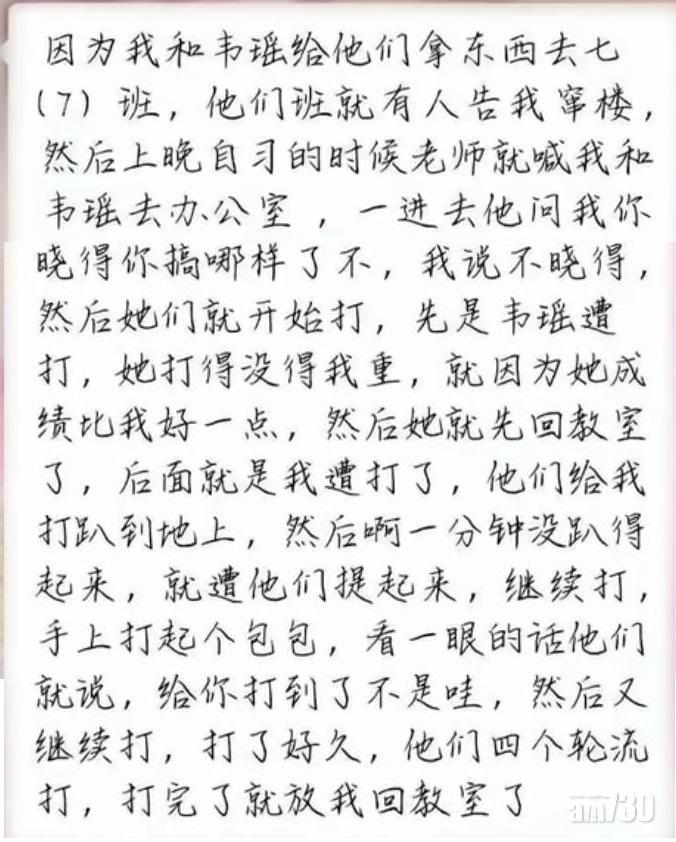 因为我和韦瑶给他们拿东西去七
(7)班，他们班就有人告我窜楼，
然后上晚自习的时候老师就喊我和
韦瑶去办公室，一进去他问我你
晓得你搞哪样了不，我说不晓得，
然后她们就开始打，先是韦瑶遭
打，她打得没得我重，就因为她成
绩比我好一点，然后她就先回教室
了，后面就是我遭打了，他们给我
打趴到地上，然后啊一分钟没趴得
起来，就遭他们提起来，继续打，
手上打起个包包，看一眼的话他们
就说，给你打到了不是哇，然后又
继续打，打了好久，他们四个轮流
打，打完了就放我回教室了
am730